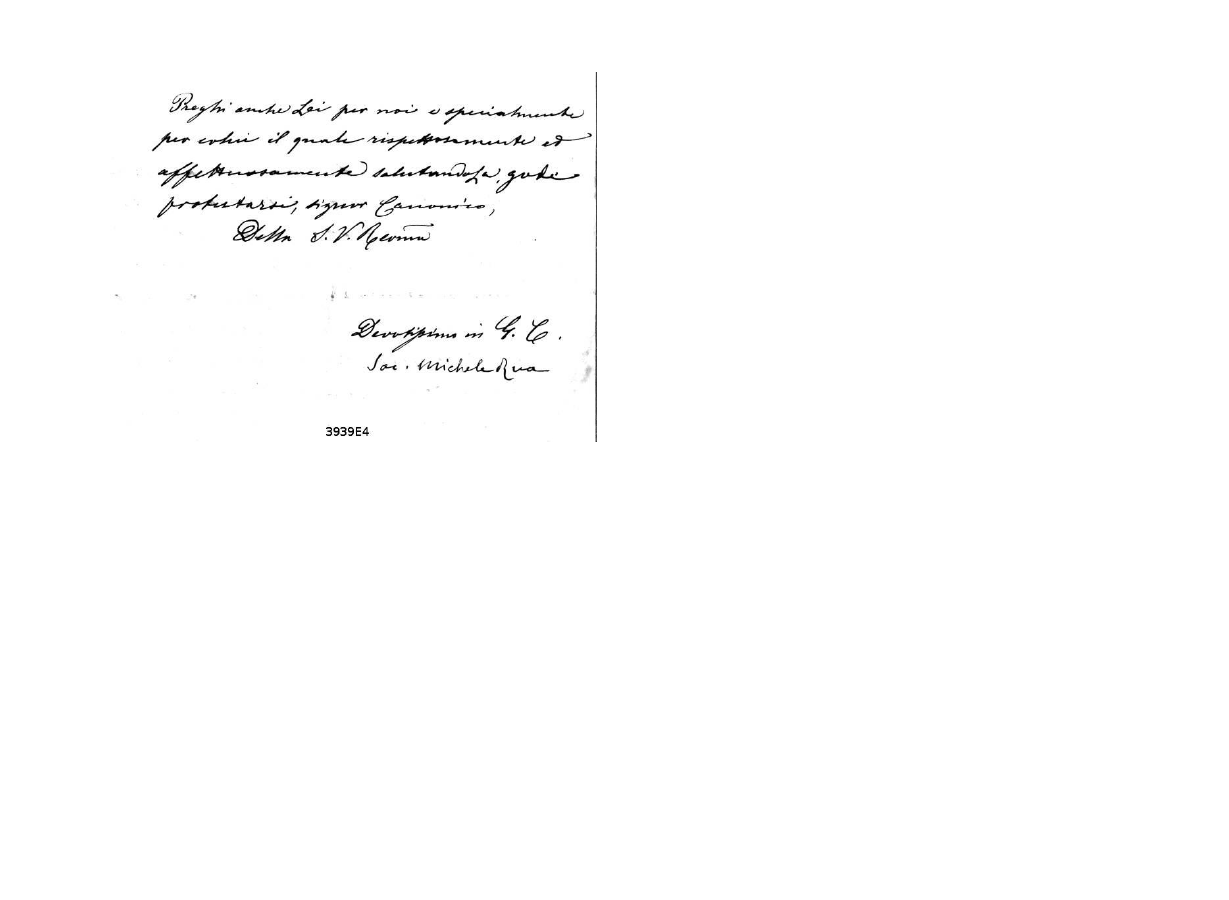 Preghi anche Lei per noi e specialmente
per colui il quale rispettosamente ed
affettuosamente salutandoLa, gode
protestarsi, signor Canonico,
Della S. V. Rev.ma
Devotissimo in G. C.
Sac. Michele Rua
3939E4